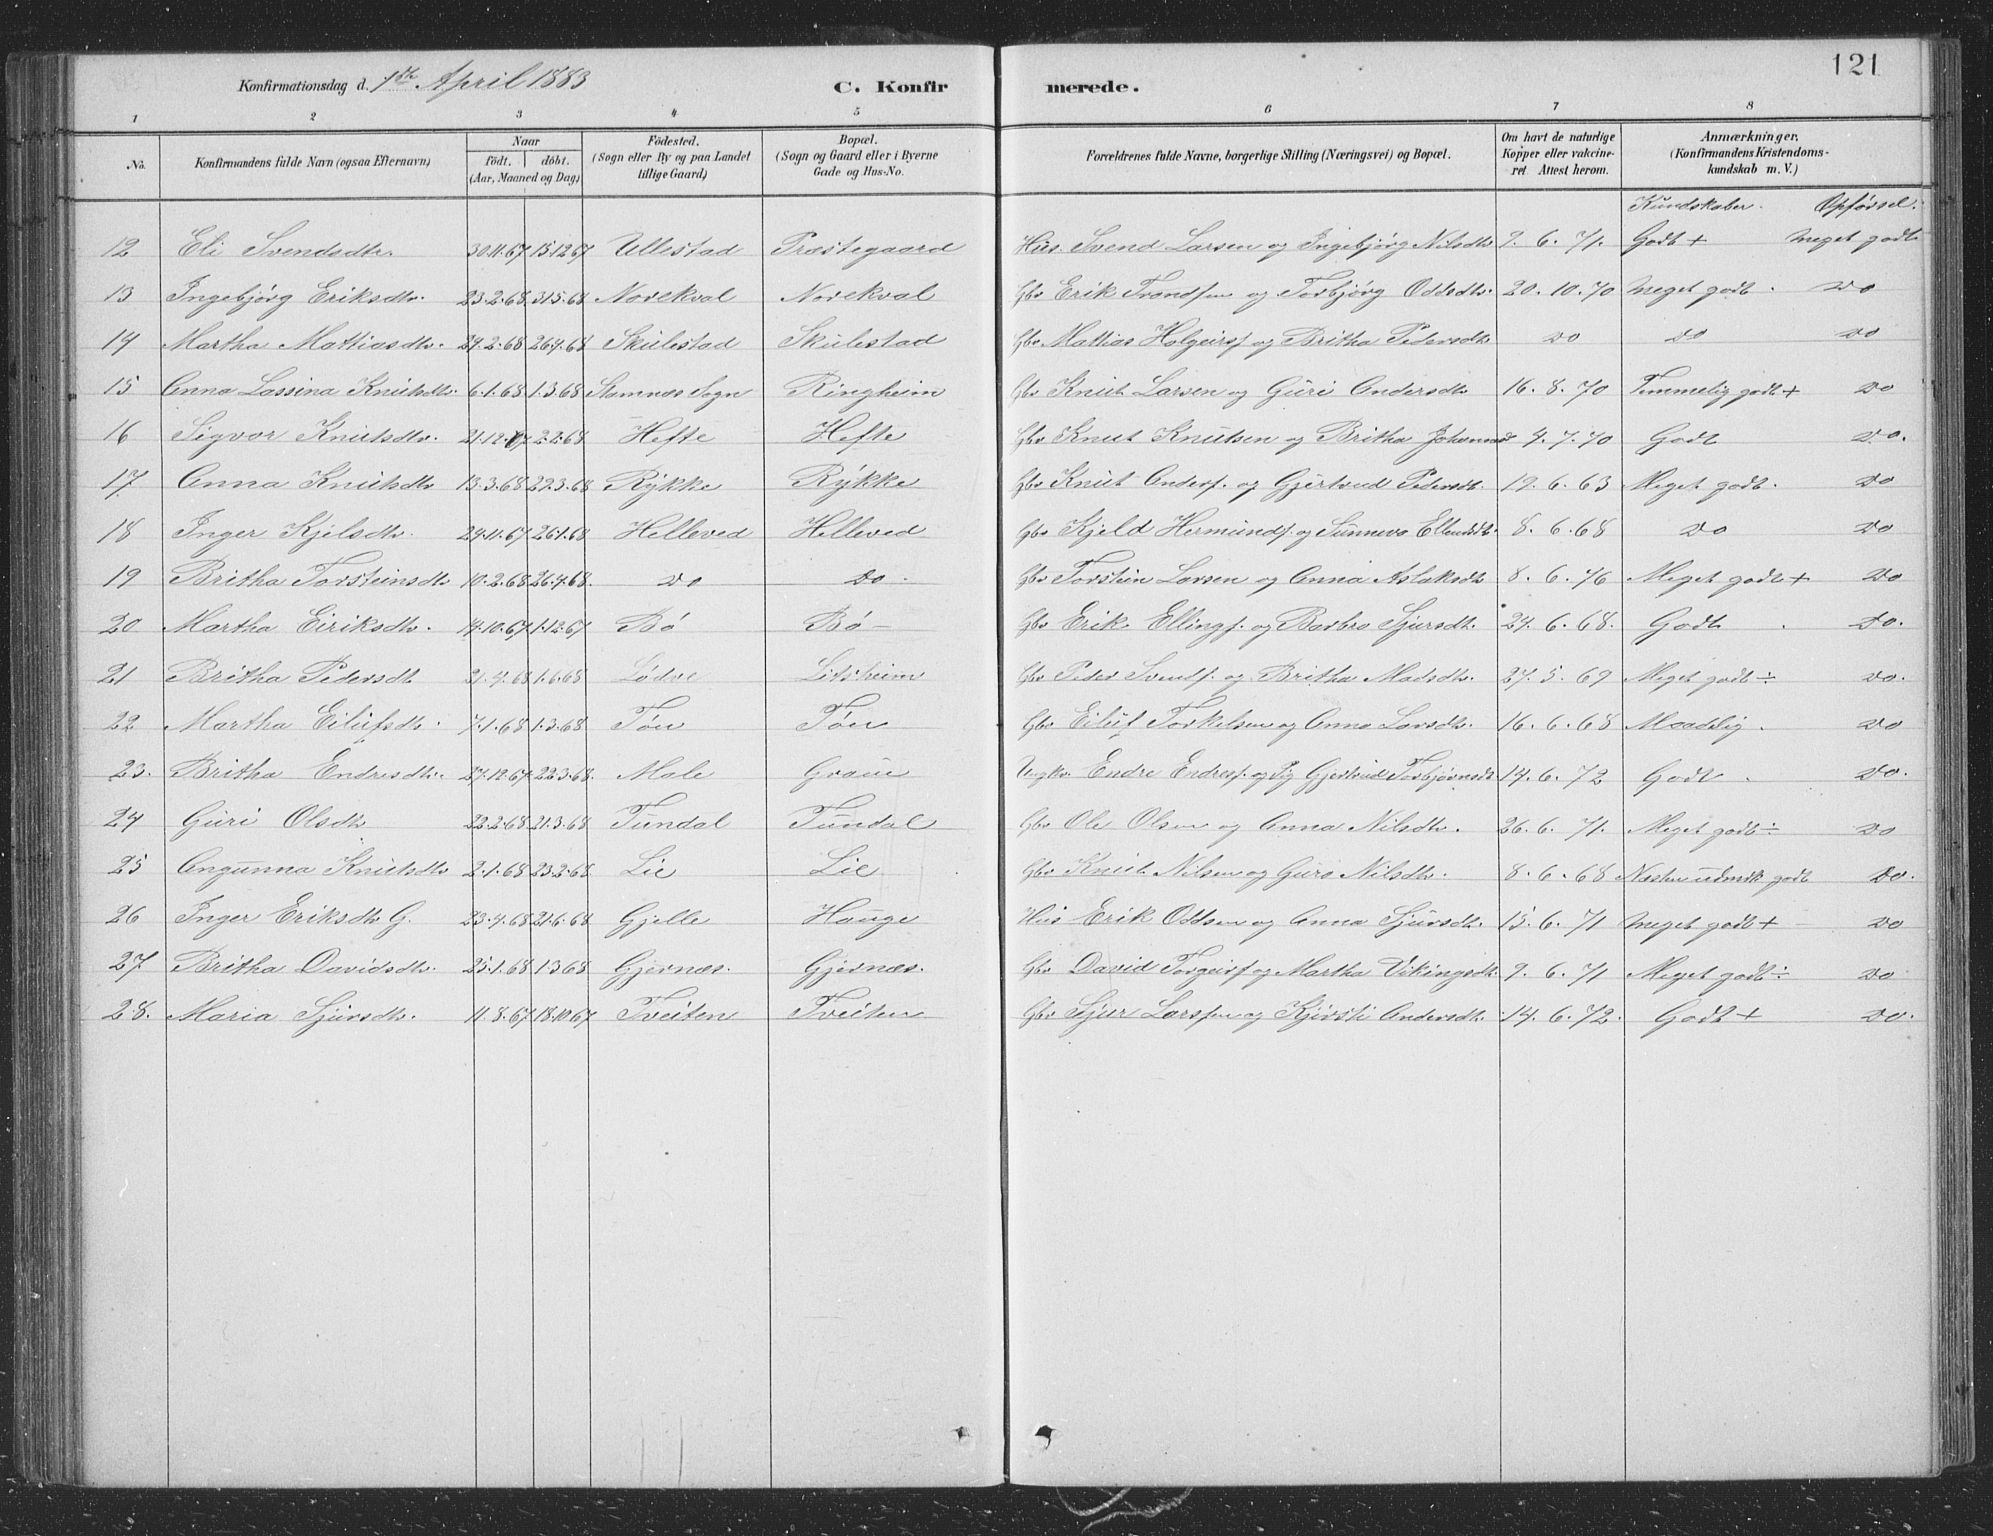 121
Konfirmationsdag d. 1ste April 1883 C. Konfirmerede.
1 2 3 4 5 6 7 8
No. Konfirmandens fulde Navn (ogsaa Efternavn) Naar födt. döbt. (Aar, Maaned og Dag) Födested. (Sogn eller By og paa Landet tillige Gaard) Bopæl. (Sogn og Gaard eller i Byerne Gade og Hus-No. Forældrenes fulde Navne, borgerlige Stilling (Næringsvei) og Bopæl. Om havt de naturlige Kopper eller vakcineret Attest herom. Anmærkninger. (Konfirmandens Kristendomskundskab m. V.)
Kundskaber. Opførsel.
12 Eli Svendsdtr. 30.11.67 15.12.67 Ullestad Præstegaard Hus. Svend Larsen og Ingebjørg Nilsdtr 9.6.71. Godt + Meget godt
13 Ingebjørg Eriksdtr. 23.2.68 31.5.68 Norekval Norekval Gbr Erik Trondsen og Torbjørg Oddsdtr 20.10.70 Meget godt. Do
14 Martha Mattiasdtr. 29.2.68 26.4.68 Skulestad Skulestad Gbr Mattias Holgeirs. og Britha Pedersdtr do do Do
15 Anna Lassina Knutsdtr. 6.1.68 1.3.68 Stamnes Sogn Ringheim Gbr Knut Larsen og Guri Andersdtr 16.8.70 Temmelig godt + Do
16 Sigvor Knutsdtr. 21.12.67 2.2.68 Hefte Hefte Gbr Knut Knutsen og Britha Johannesd 4.7.70 Godt Do.
17. Anna Knutsdtr 13.3.68 22.3.68 Rykke Rykke Gbr Knut Anders. og Gjertrud Pedersdt. 19.6.63 Meget godt. Do
18 Inger Kjelsdtr. 24.11.67 26.1.68 Helleved Helleved Gbr Kjeld Hermunds. og Sunneva 8.6.68 Do Do
19 Britha Torsteinsdtr 10.2.68 26.4.68. Do Do. Gbr Torstein Larsen og Anna Aslaksdtr 8.6.76 Meget godt + Do
20 Martha Eiriksdtr. 14.10.67 1.12.67 Bø Bø Gbr Erik Ellings. og Barbro Sjursdt. 24.6.68. Godt. Do.
21 Britha Pedersdt 21.4.68 1.6.68 Lødve Litsheim Gbr Peder Svends. og Britha Madsdtr. 27.5.69 Meget godt ÷ Do.
22 Martha Eilufsdtr. 7.1.68 1.3.68 Tøn Tøn Gbr Eiluf Torkelsen og Anna Larsdtr. 16.6.68 Maadelig. Do
23. Britha Endresdtr. 27.12.67 22.3.68. Male Graue Ungkr Endre Endres. og Pig Gjertrud Torbjørnsdt 14.6.72 Godt. Do.
24 Guri Olsdtr 22.2.68 21.3.68 Tundal Tundal Gbr Ole Olsen og Anna Nilsdtr. 26.6.71. Meget godt ÷ Do
25 Angunna Knutsdtr 2.1.68 23.2.68 Lie Lie Gbr Knut Nilsen og Guro Nilsdtr. 8.6.68 Næsten udmrk godt Do.
26 Inger Eriksdtr G. 23.4.68 21.6.68 Gjelle Hauge Hus Erik Oddsen og Anna Sjursdtr. 15.6.71 Meget godt + Do
27 Britha Davidsdtr. 25.1.68 1.3.68 Gjernæs. Gjernæs. Gbr David Torgeirs. og Martha Vikingsdt 9.6.71 Meget godt ÷ Do
28. Maria Sjursdtr. 11.8.67 18.10.67 Tveiten Tveiten Gbr Sjur Larssen og Kjersti Andersdtr. 14.6.72. Godt + Do.